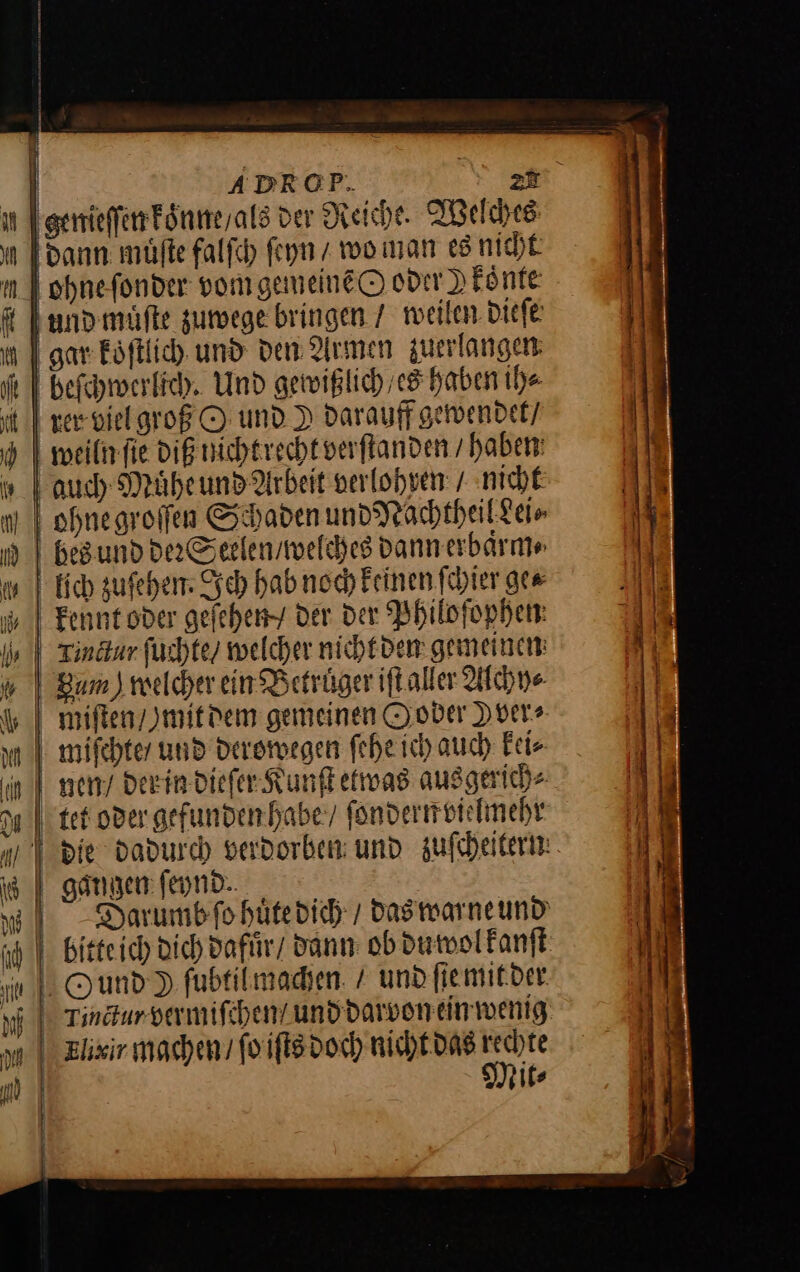 ADROP. 21
genieſſen koͤnne / als der Reiche. Welches
dann muͤſte falſch ſeyn / wo man es nicht
ohne ſonder vom gemeinē ☉ oder ☽ koͤnte
und muͤſte zuwege bringen / weilen dieſe
gar koͤſtlich und den Armen zuerlangen
beſchwerlich. Und gewißlich / es haben ih⸗
rer viel groß ☉ und ☽ darauff gewendet /
weiln ſie diß nicht recht verſtanden / haben
auch Muͤhe und Arbeit verlohren / nicht
ohne groſſen Schaden und Nachtheil Lei⸗
bes und der Seelen / welches dann erbaͤrm⸗
lich zuſehen. Ich hab noch keinen ſchier ge⸗
kennt oder geſehen / der der Philoſophen
Tinctur ſuchte / welcher nicht den gemeinen
☿um) welcher ein Betruͤger iſt aller Alchy⸗
miſten /) mit dem gemeinen ☉ oder ☽ ver⸗
miſchte / und derowegen ſehe ich auch kei⸗
nen / der in dieſer Kunſt etwas ausgerich⸗
tet oder gefunden habe / ſondern vielmehr
die dadurch verdorben und zuſcheitern
gangen ſeynd.
Darumb ſo huͤte dich / das warne und
bitte ich dich dafuͤr / dann ob du wol kanſt
☉ und ☽ ſubtil machen / und ſie mit der
Tinctur vermiſchen / und darvon ein wenig
Elixir machen / ſo iſts doch nicht das rechte
Mit⸗